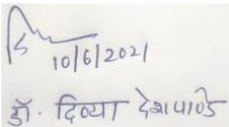 10/6/2021
डॉ. दिव्या देशपाण्डे